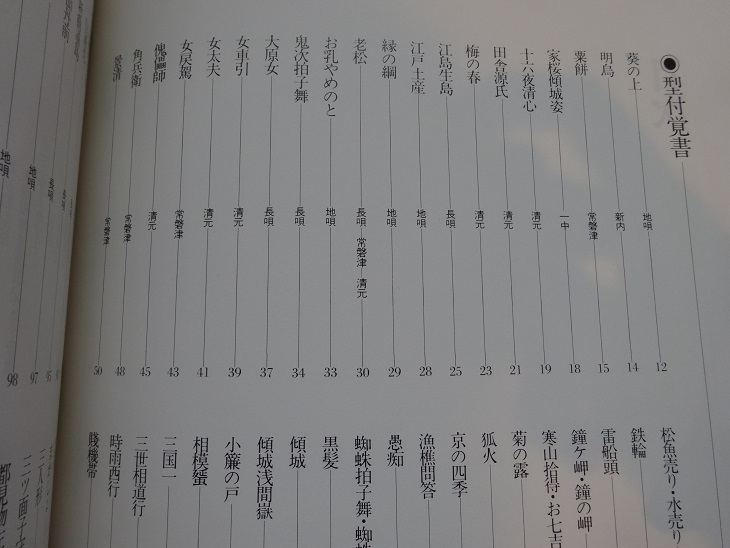 ◉型付覚書
葵の上 地唄 12
明烏 新内 14
粟餅 常磐津 15
家桜傾城姿 一中 18
十六夜清心 清元 19
田舎源氏 清元 21
梅の春 清元 23
江島生島 長唄 25
江戸土産 地唄 28
縁の綱 地唄 29
老松 長唄 常磐津 清元 30
お乳やめのと 地唄 33
鬼次拍子舞 長唄 34
大原女 長唄 37
女車引 清元 39
女太夫 清元 41
女戻駕 常磐津 43
傀儡師 清元 45
角兵衛 常磐津 48
常磐津 50
松魚売り・水売り
鉄輪
雷船頭
鐘ケ岬・鐘の岬
寒山拾得・お七吉
菊の露
狐火
京の四季
漁樵問答
愚痴
蜘蛛拍子舞・蜘蛛
黒髪
傾城
傾城浅間嶽
小簾の戸
相模蜑
三国一
三世相道行
時雨西行
賤機帯
長唄 95
地唄 97
地唄 98
三人形
三ツ面子守